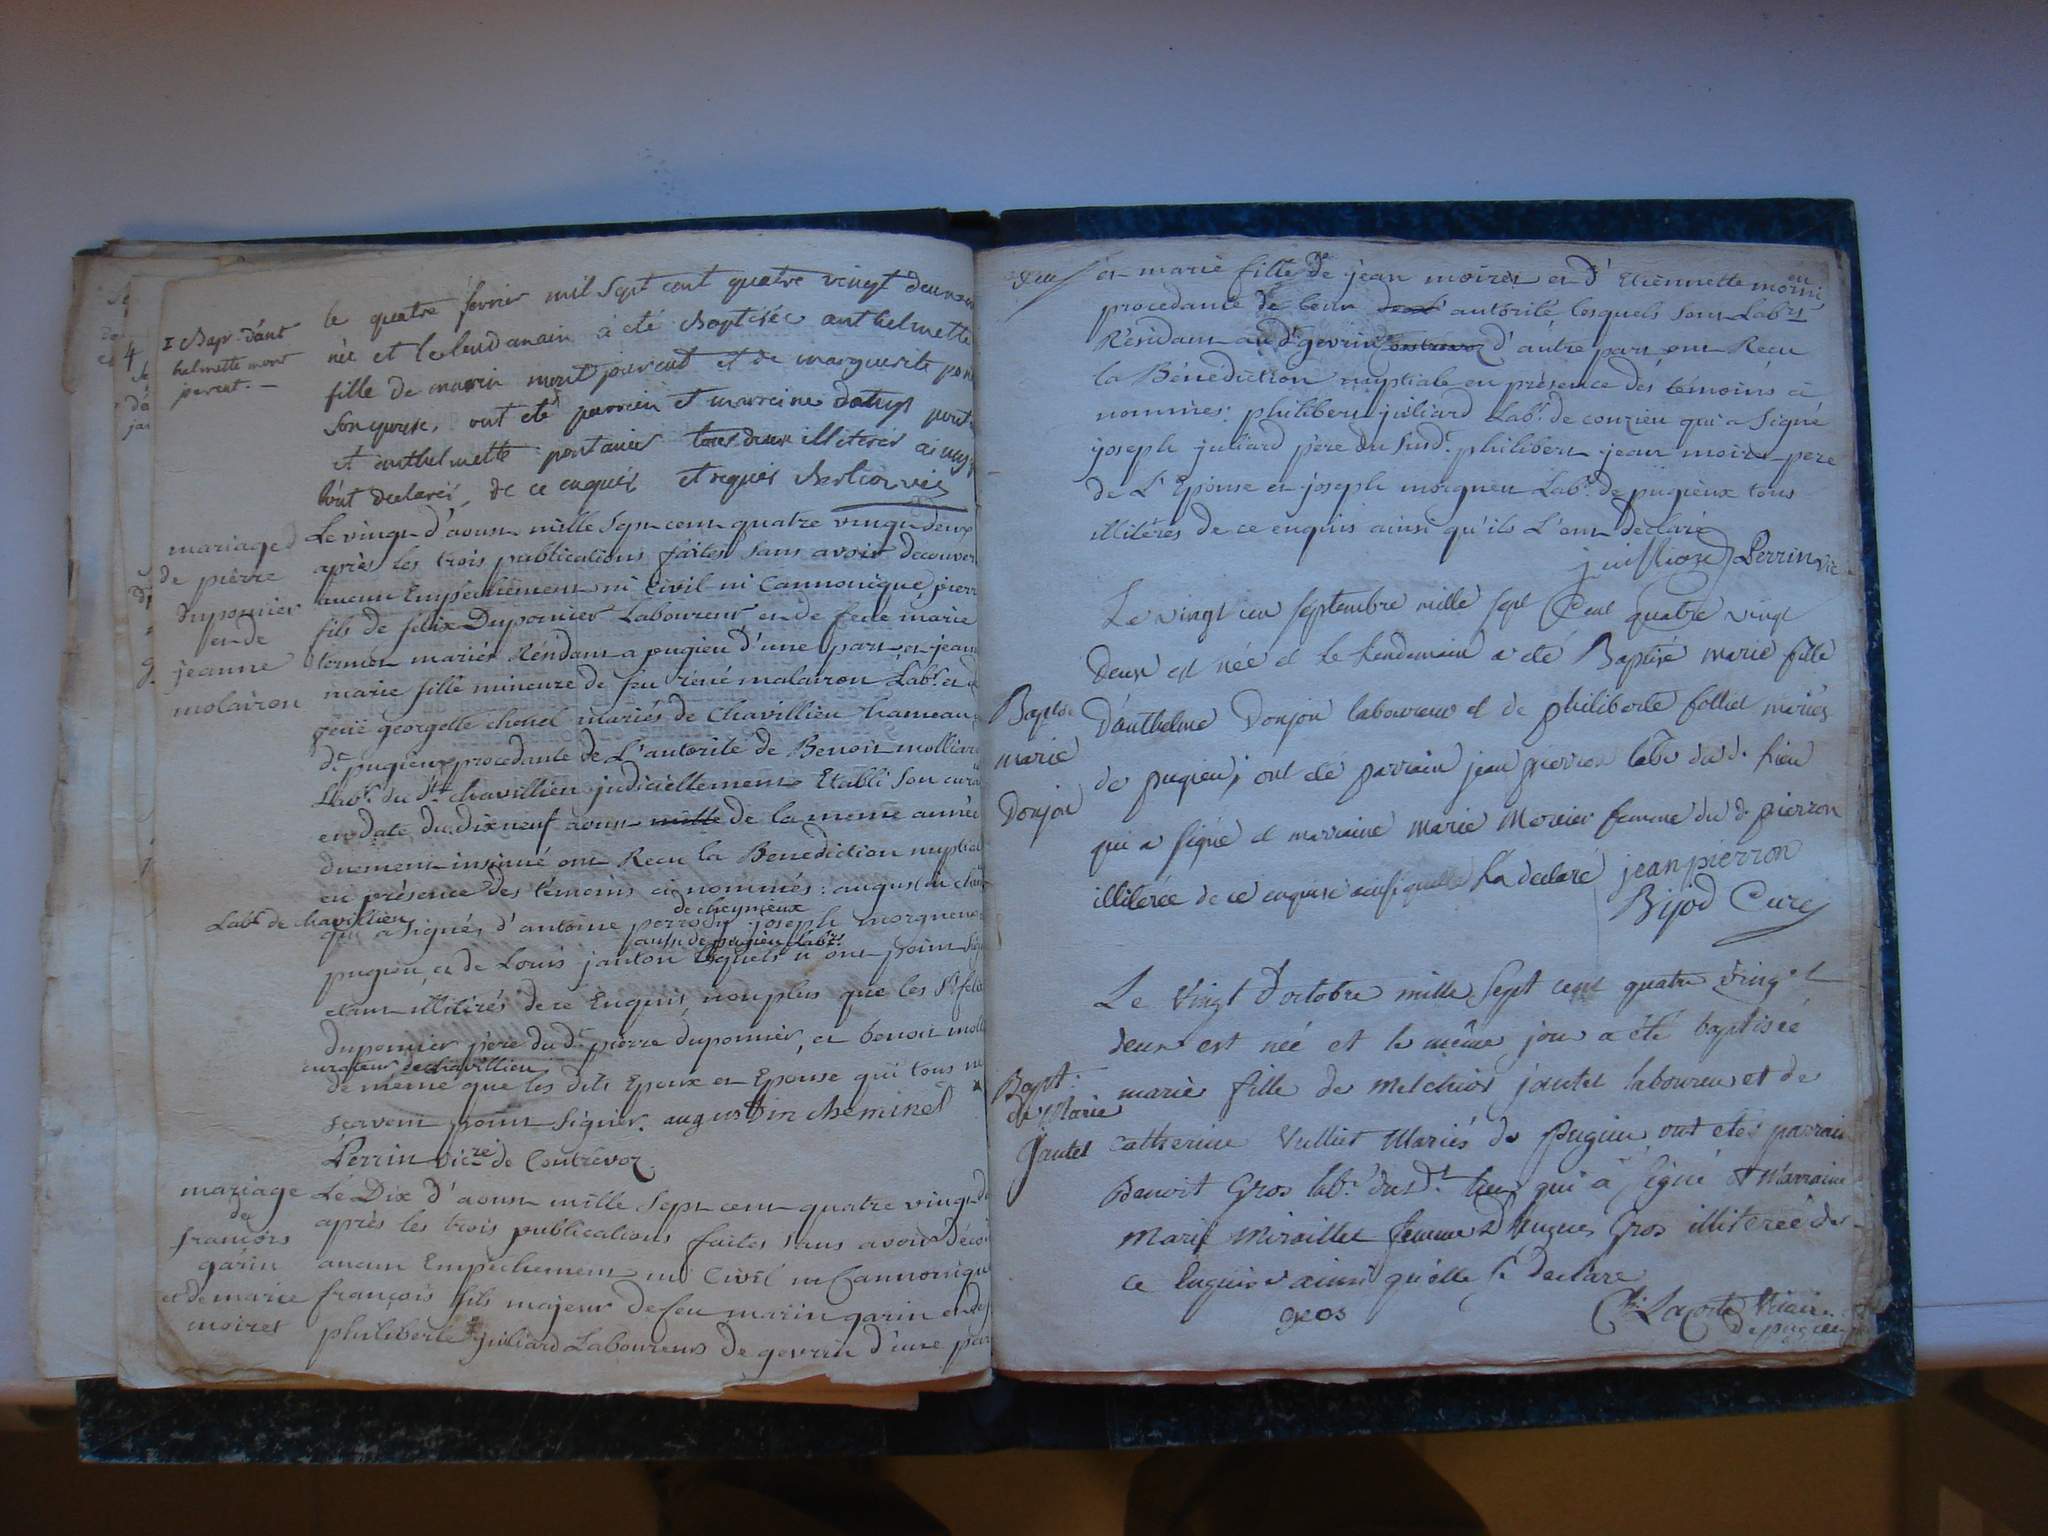 1 Bapt. d'ant
helmette mont
parent. —
le quatre fevrier mil sept cent quatre vingt deux
née et le lendemain à été Baptisée anthelmette
fille de marin mont parent et de marguerite
son epouse, ont été parrein et marreine
et anthelmette pontanier tous deux illiterés ainsy
l'ont declarés, de ce enquis et requis
mariage
de pierre
Duponnier
et de
jeanne
molairon
Le vingt d'aoust mille sept cent quatre vingt deux
après les trois publications faites sans avoir decouvert
aucun Empechement ni Civil ni Cannonique, pierre
fils de felix Duponnier Laboureur et de feue marie
mariés Résidant a pugieu d'une part et jeanne
marie fille mineure de feu réné malairon Labr. et
feüe georgette chenel mariés de Chavillieu hameau
de pugieux procedante de L'autorité de Benoit molliard
Labr. du dt. chavillieu judiciellement Etabli son cura
en date du dixneuf aoust mille de la meme année
duement insinué ont Recu la Benediction nuptial
en présence des témoins ci nommés: augustin
Labr. de chavillieu
qui a signés, d'antoine perrodin de cheynieux joseph morgneux
pugieu, et de Louis janton aussi de pugieu labrs. lesquels n'ont point
etant illitérés de ce Enquis, non plus que les Srs felix
duponnier père du dt. pierre duponnier, et benoit moll
curateur de chavillieu
de même que les dits Epoux et Epouse qui tous ne
scavent point signer. augustin cheminet
Perrin vicre de Contrevoz
mariage
de
françois
garin
et de marie
moiret
Le Dix d'aoust mille sept cent quatre vingt d
après les trois publications faites sans avoir déco
aucun Empechement ni Civil ni Cannonique
françois fils majeur de feu marin garin et de
philiberte juliard Laboureurs de gevrin d'une par
et marie fille de jean moiret et d'Etiennette
procedante de leur autorité lesquels sont Labrs
Résidant au dt. gevrin contrevoz d'autre part ont Recu
la Bénédiction nuptiale en présence des témoins ci
nommés: philibert juliard Labr. de conzieu qui a signé
joseph juliard père du susdt. philibert jean moiret pere
de L'Epouse et joseph morgneu Labr. de pugieux tous
illitéres de ce enquis ainsi qu'ils L'ont declaré
juilliard Perrin vic
Bapte.
marie
Donjon
Le vingt un septembre mille sept Cent quatre vingt
deux est née et le lendemain a eté Baptisé marie fille
d'anthelme Donjon laboureur et de philiberte folliet mariés
de pugieu; ont été parrain jean pierron labr du d. lieu
qui a signé et marraine marie Mercier femme du d. pierron
illiterée de ce enquise ainsi quelle la declaré jean pierron
Bijod Curé
Bapt.
de Marie
Jantet
Le vingt d'octobre mille sept cent quatre vingt
deux est née et le même jour a été baptisée
marie fille de melchior jantet laboureur et de
catherine Vulliet Mariés de Pugieu ont etés parrain
Benoit Gros labr. dudt. lieu qui a signé et Marraine
Marie Miraillet femme d'hugues Gros illiterée de
ce Enquise ainsi qu'elle l'a declare
gros
Lacoste Vicaire
de pugieu